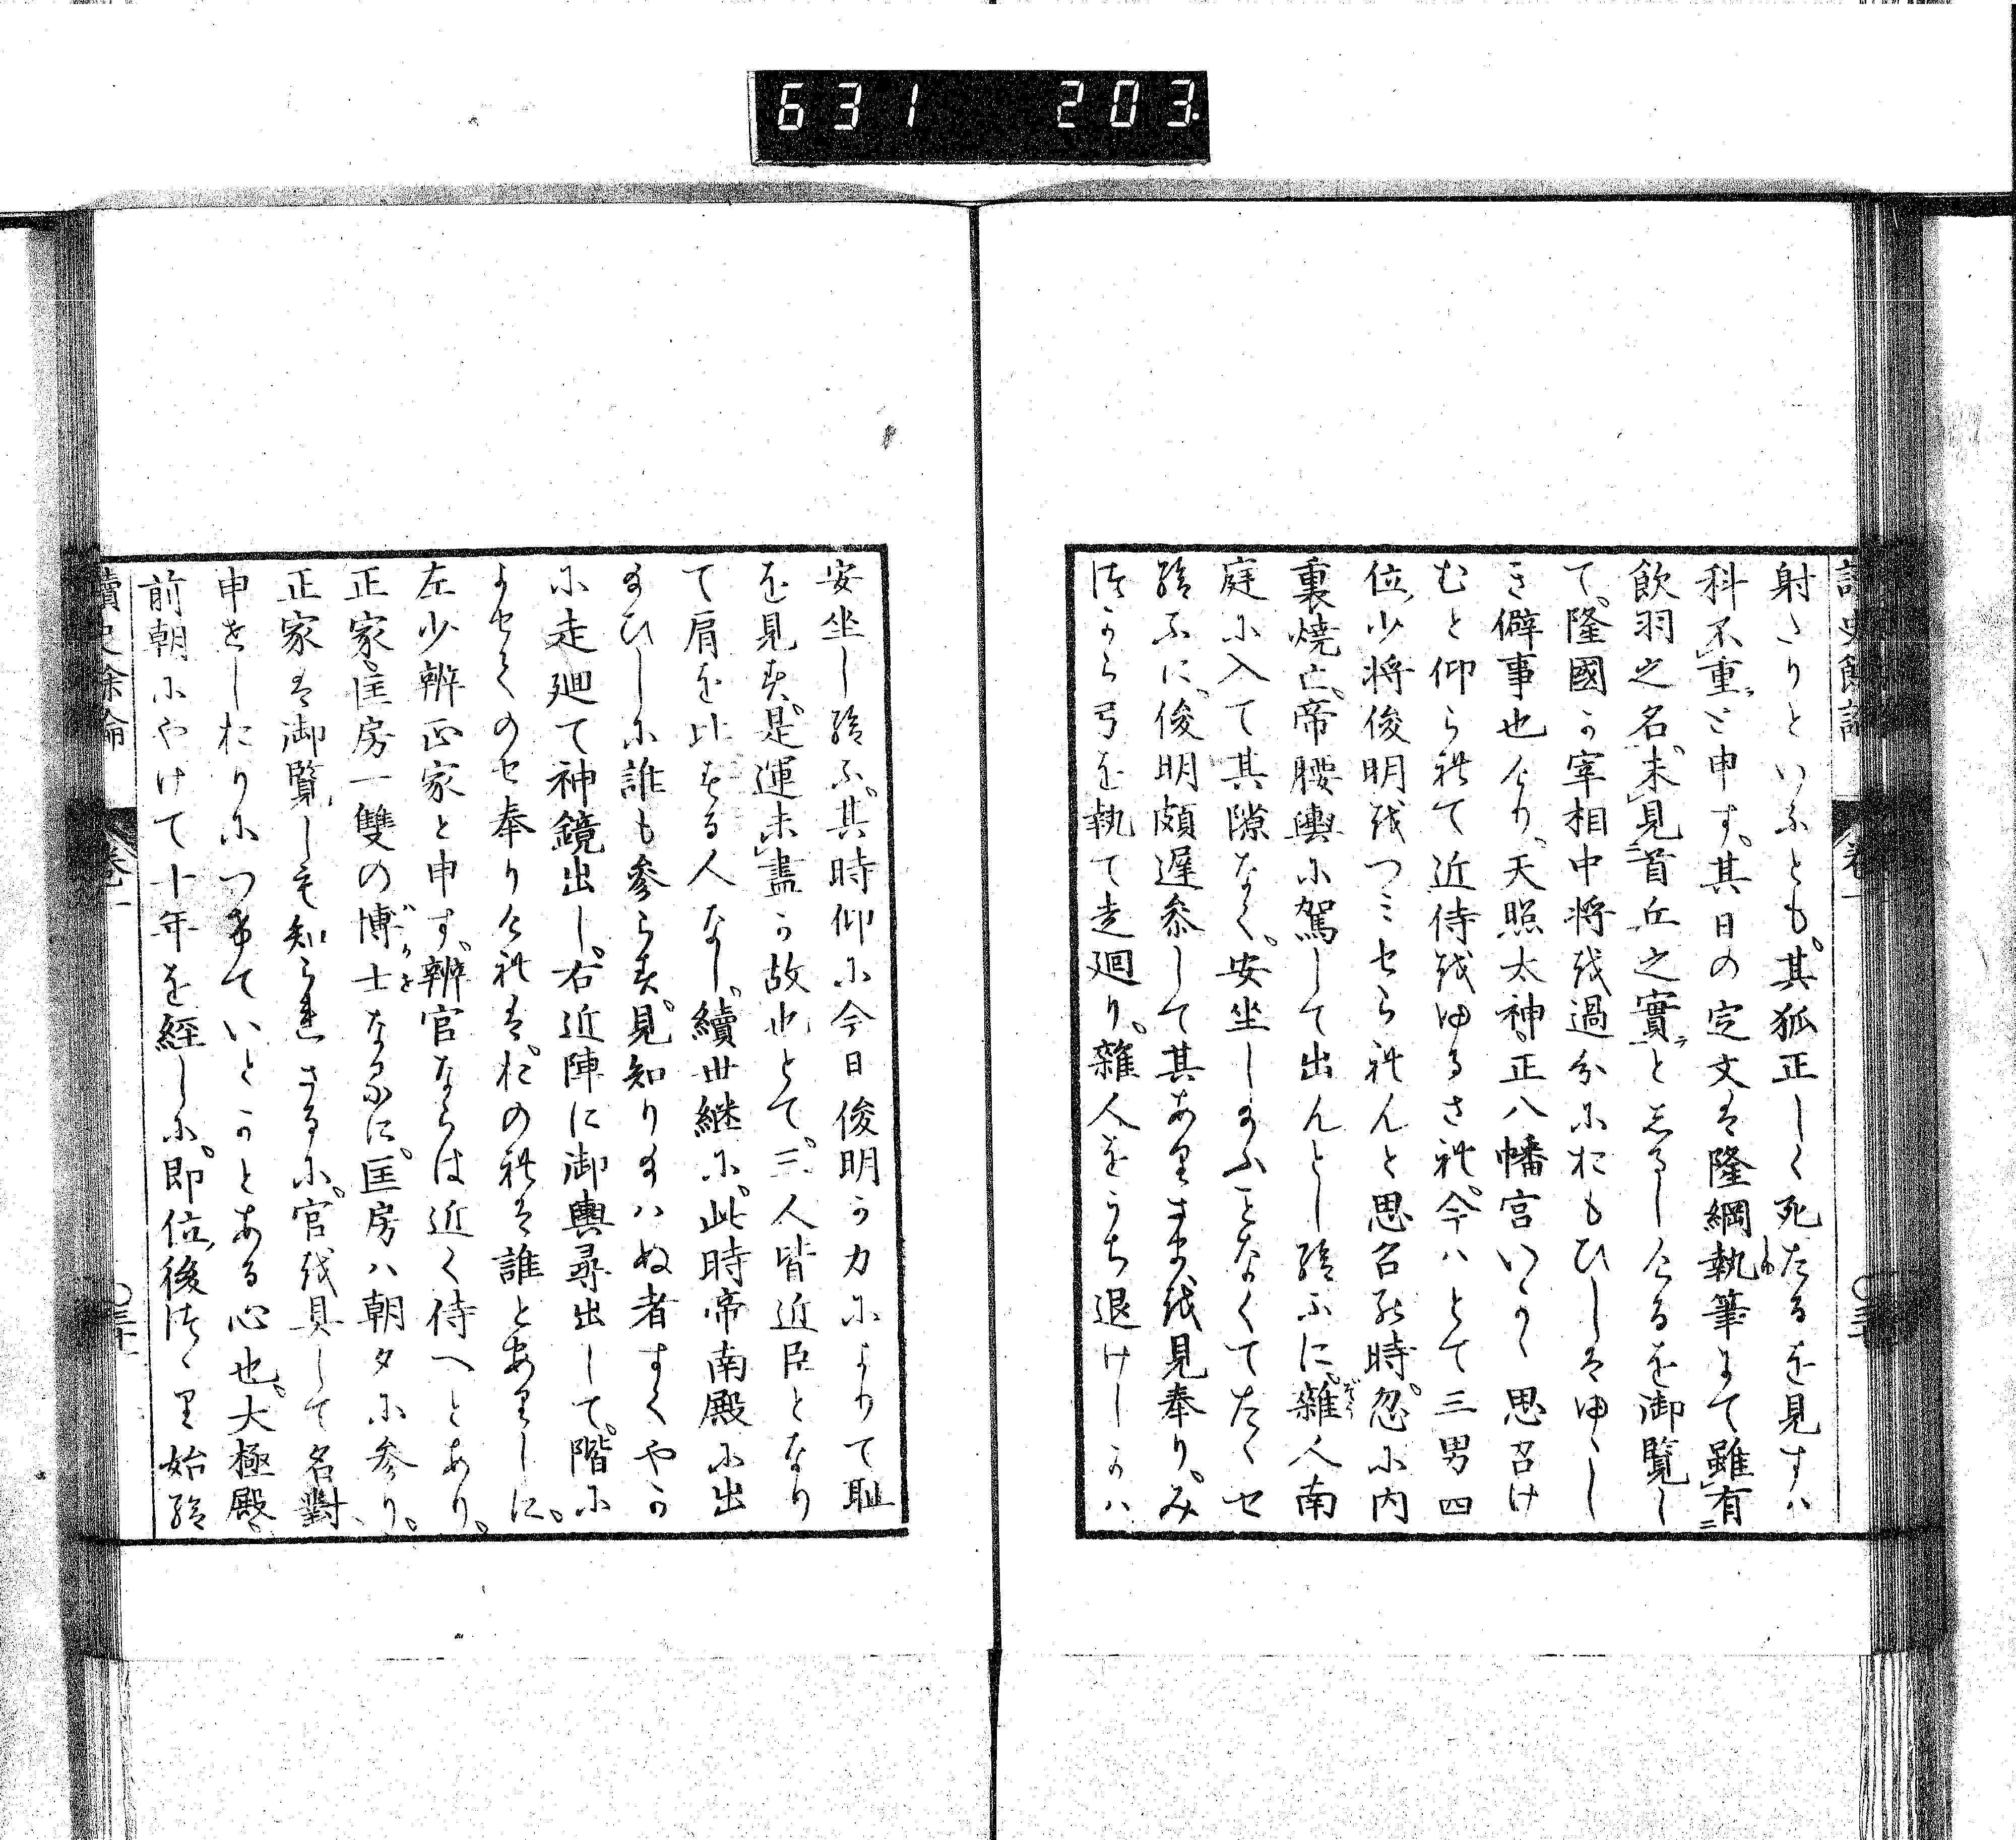 631 203
讀史餘論 卷一
射さりといふとも其狐正しく死たるを見すハ
科不重と申す其日の定文は隆綱執筆にて雖有
飲羽之名未見首丘之實としるしけるを御覧し
て隆國か宰相中将を過分におもひしはゆゝし
き僻事也けり天照太神正八幡宮いかゝ思召け
むと仰られて近侍をゆるされ今ハとて三男四
位少将俊明をつミせられんと思召れ時忽に内
裏焼亡帝腰輿に駕して出んとし給ふに雑人南
庭に入て其隙なく安坐し給ふことなくてたゝせ
給ふに俊明頗遅参して其ありさまを見奉りみ
つから弓を執て走廻り雑人をうち退けしかハ
安坐し給ふ其時仰に今日俊明か力によりて耻
を見す是運未盡か故也とて三人皆近臣となり
て肩を比する人なし續世継に此時帝南殿に出
給ひしに誰も參らす見知り給ハぬ者すくやか
に走廻て神鏡出し右近陣に御輿尋出して階に
よせてのせ奉りけれはおのれは誰とありしに
左少辨正家と申す辨官ならは近く侍へとあり
正家匡房一雙の博士なるに匡房ハ朝夕に参り
正家は御覧しも知られさるに官を具して名對
申せしおりにつきていとかとある心也大極殿
前朝にやけて十年を經しに即位後つゝり始給
讀史余論 卷一